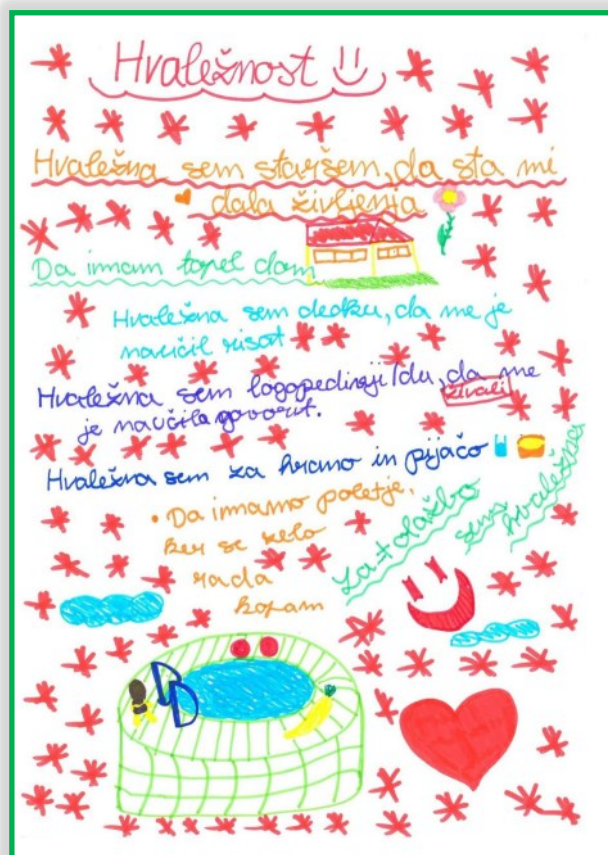 Hvaležnost
Hvaležna sem staršem, da sta mi
dala življenja
Da imam topel dom
Hvaležna sem dedku, da me je
naučil risat
Hvaležna sem logopedinji Idu, da me
je naučila govorit.
živali
Hvaležna sem za hrano in pijačo
• Da imamo poletje,
ker se zelo
rada
kopam
Za tolažbo
sem hvaležna